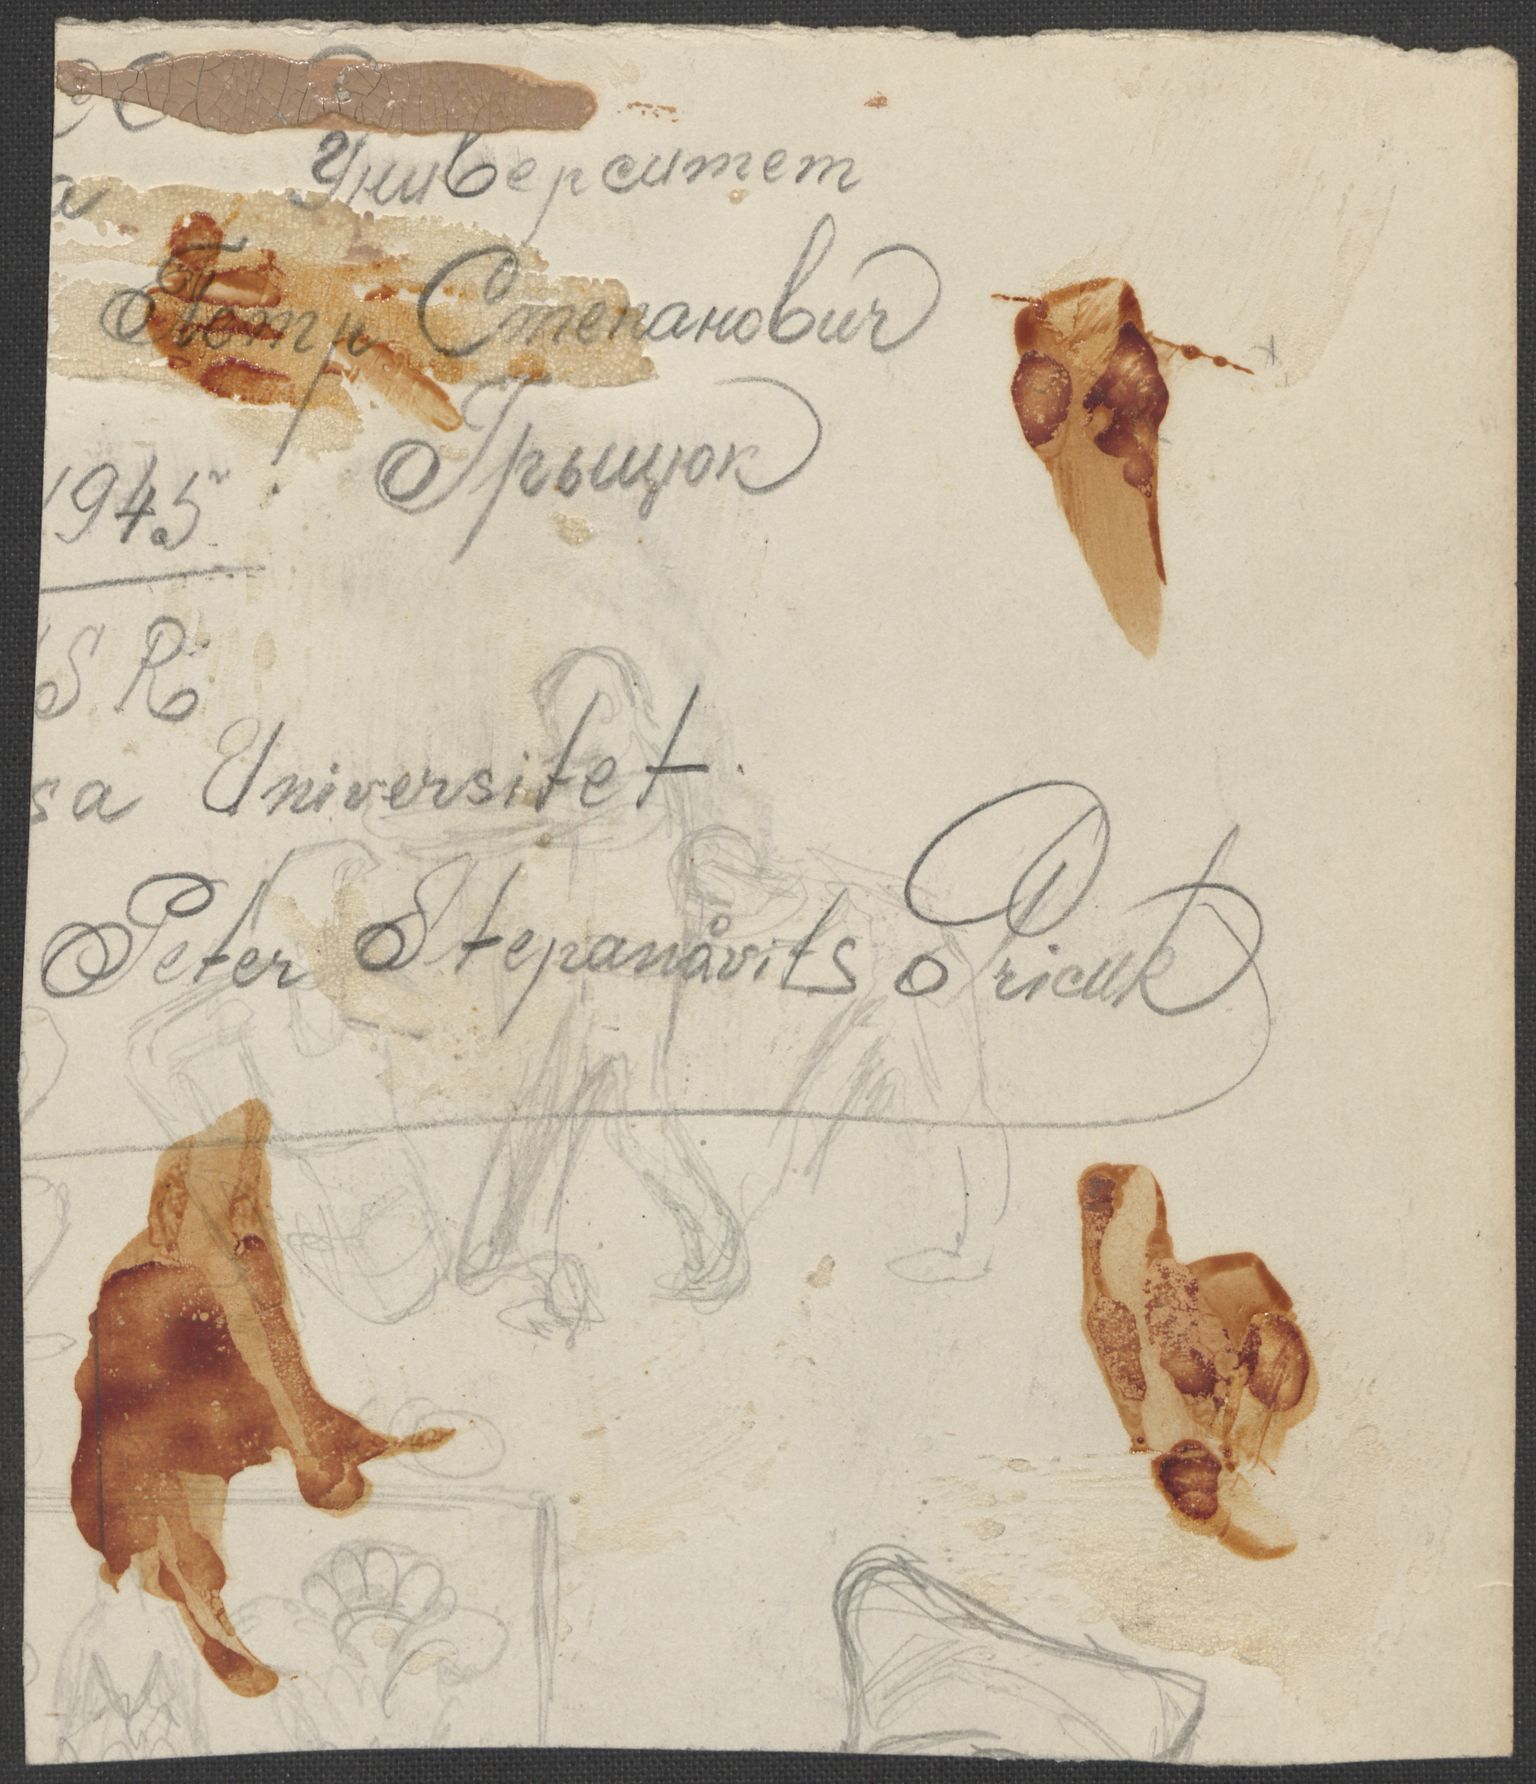 СС С
а Университет
Петр Степанович
Грыщюк
1945 г.
SSR
sa Universitet.
Peter Stepanåvits Gricuk